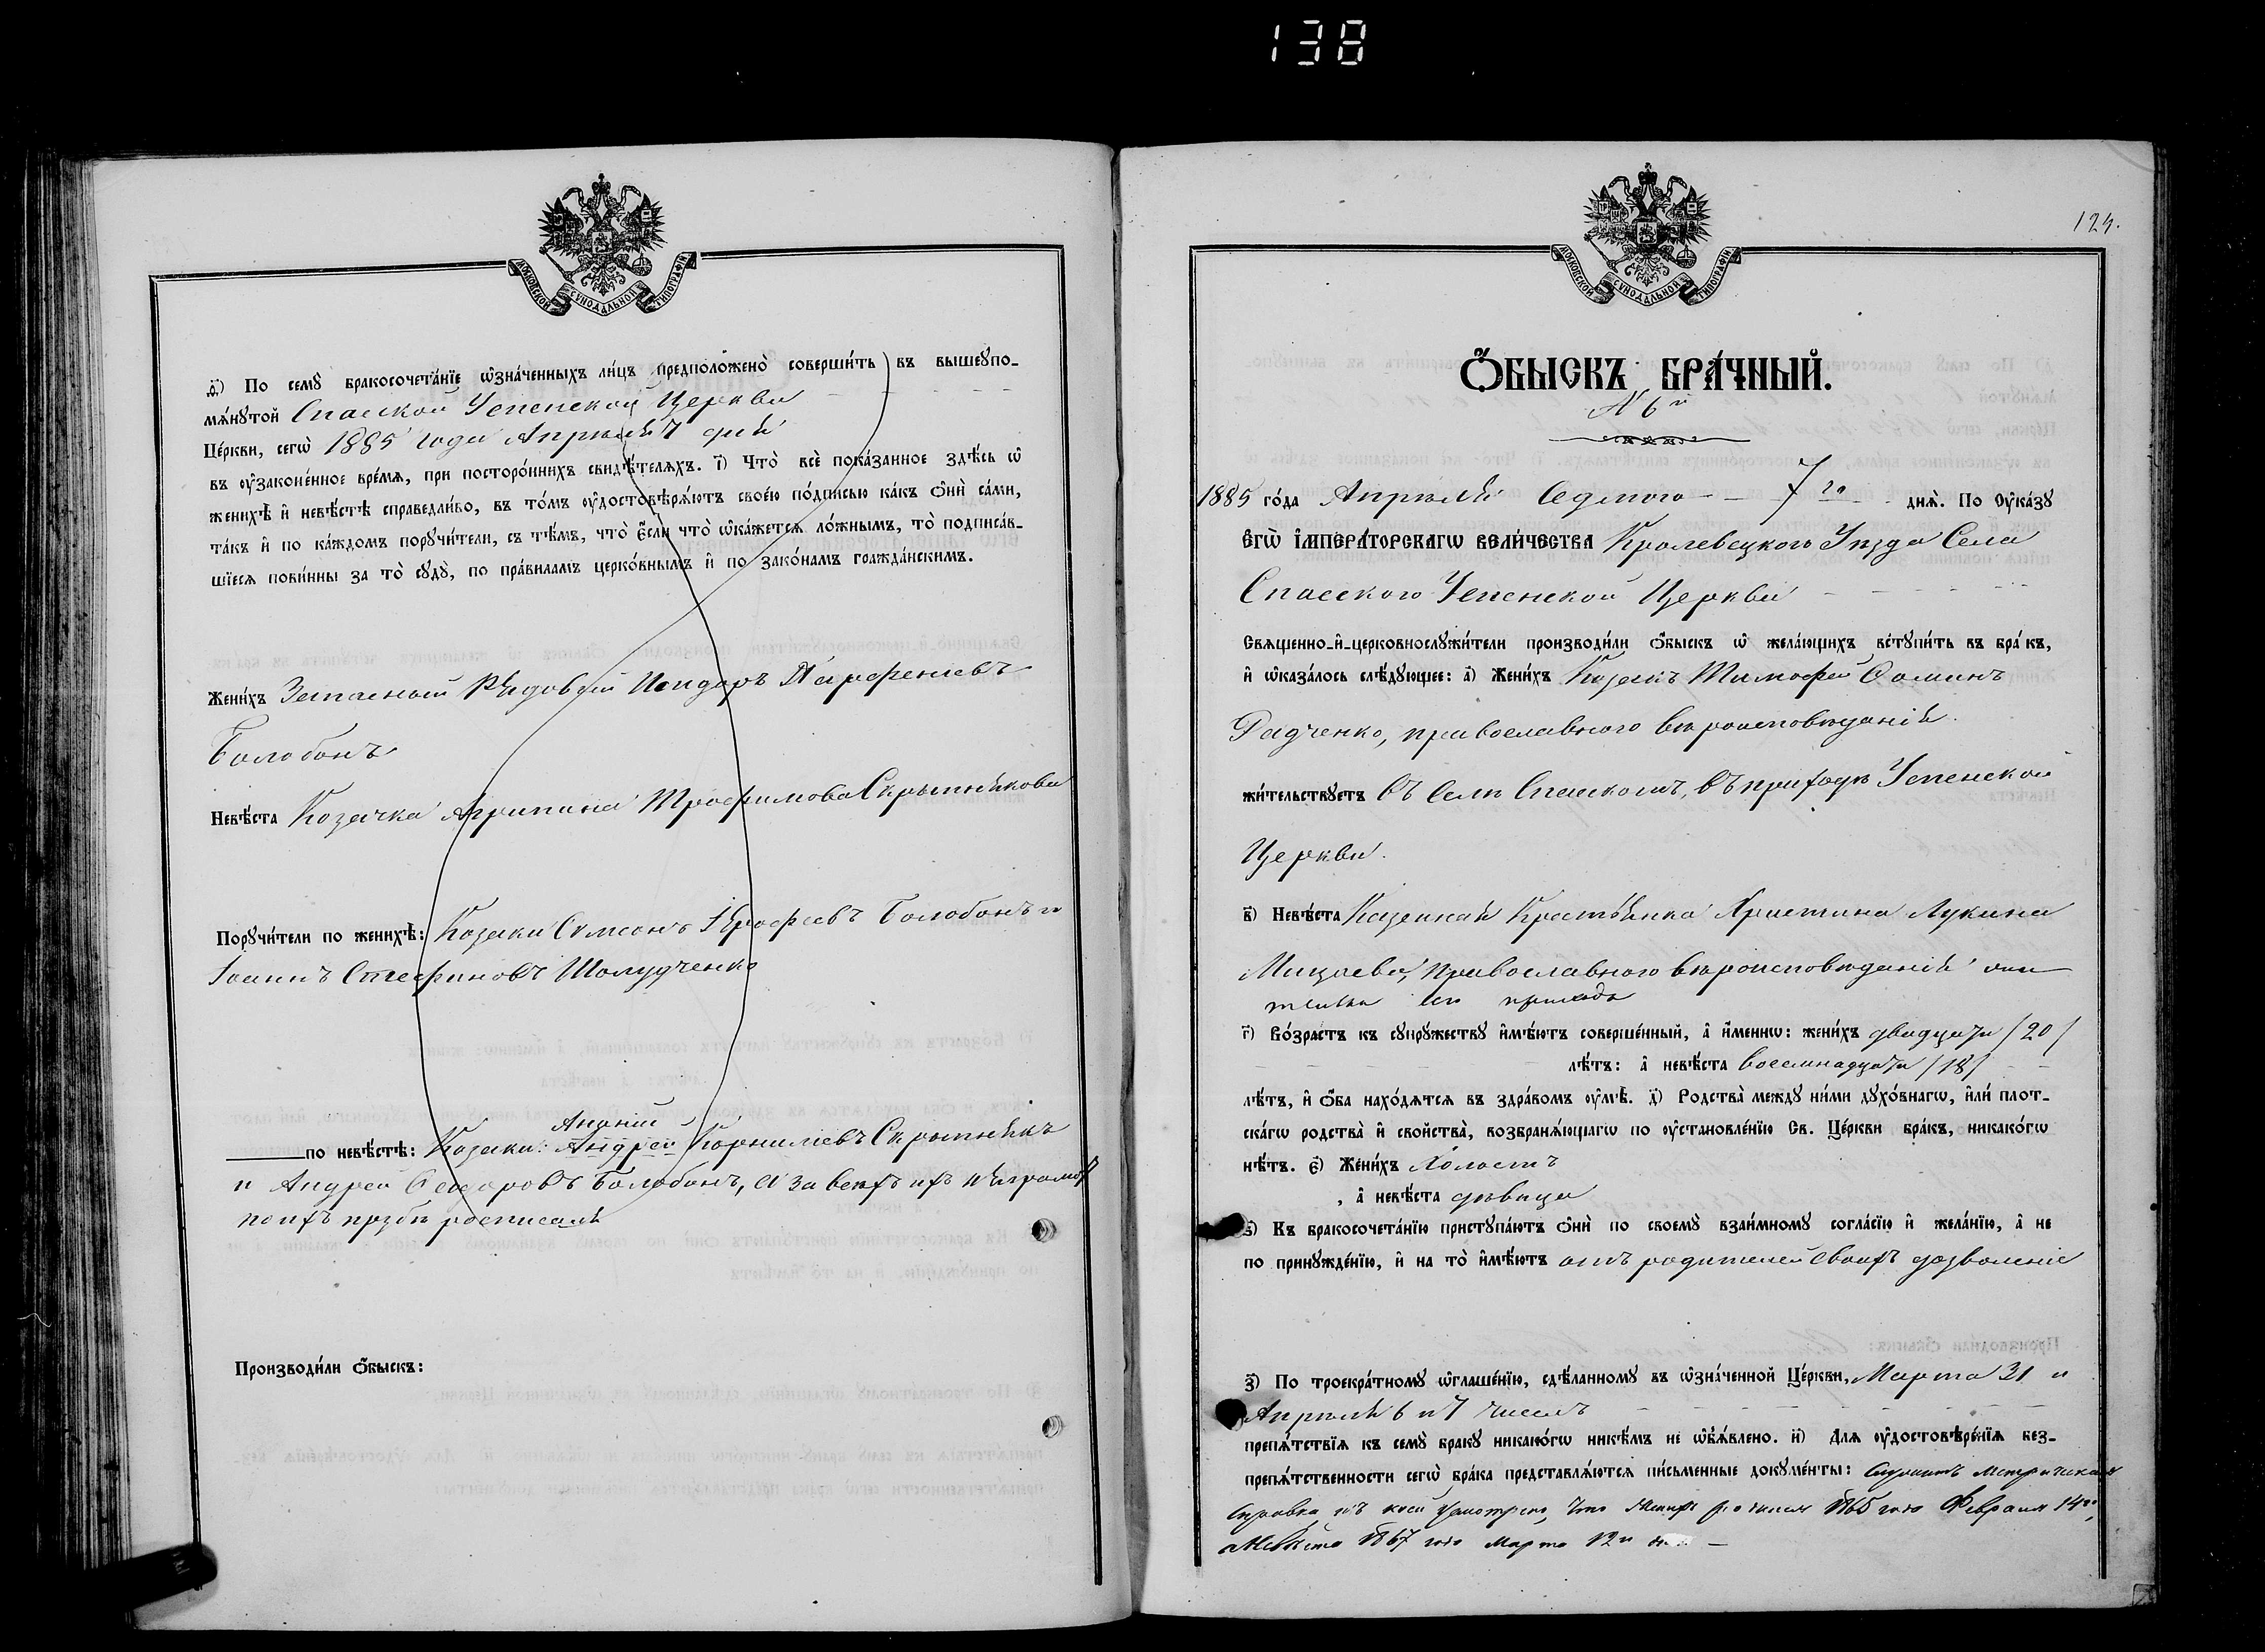 138
МОСКОВСКОЙ СѴНОДАЛЬНОЙ ТИПОГРАФІИ
д҃і) По семꙋ̀ бракосочета́нїе ѡ҆зна́ченныхъ ли́цъ предположено̀ соверши́ть въ вышеꙋпо-
мѧ́нꙋтой Спасской Успенской Церкви
Це́ркви, сегѡ̀ 1885 года Апрѣля 7 дня
въ ᲂу҆зако́ненное вре́мѧ, при посторо́ннихъ свидѣ́телѧхъ. і҃) Что̀ всѐ пока́занное здѣ́сь ѡ҆
женихѣ̀ и҆ невѣ́стѣ справедли́во, въ то́мъ ᲂу҆достовѣрѧ́ютъ свое́ю по́дписью ка́къ ѻ҆нѝ са́ми,
та́къ и҆ по ка́ждомъ порꙋчи́тели, съ тѣ́мъ, что̀ є҆́сли что̀ ѡ҆ка́жетсѧ ло́жнымъ, то̀ подписа́в-
шїесѧ пови́нны за то̀ сꙋдꙋ̀, по пра́виламъ церко́внымъ и҆ по зако́намъ гражда́нскимъ.
Жени́хъ Запасный Рядовой Исидоръ Парфеніевъ
Болобонъ
Невѣ́ста Козачка Агрипина Трофимова Скрыпникова
Порꙋчи́тели по женихѣ̀: Козаки Самсонъ Ерофеевъ Болобонъ и
Іоаннъ Стефановъ Шолудченко
Ананій
по невѣ́стѣ: Козаки: Андрей Корниліевъ Скрыпникъ
и Андрей Феодоровъ Болобонъ, а за всехъ ихъ неграмот
по ихъ прзбѣ росписался
Производи́ли ѻ҆́быскъ:
124.
МОСКОВСКОЙ СѴНОДАЛЬНОЙ ТИПОГРАФІИ
Ѻ҆́БЫСКЪ БРА́ЧНЫЙ.
№ 6й
1885 го́да Апрѣля Седмого 7го днѧ̀. По Оу҆ка́зꙋ
Є҆гѡ̀ І҆мпера́торскагѡ Вели́чества Кролевецкого Уѣзда Села
Спасского Успенской Церкви
Свѧщенно-и҆-церковнослꙋжи́тели производи́ли ѻ҆́быскъ ѡ҆ жела́ющихъ встꙋпи́ть въ бра́къ,
и҆ ѡ҆каза́лось слѣ́дꙋющее: а҃) Жени́хъ Козакъ Тимофей Фоминъ
Радченко, православного вѣроисповѣданія.
жи́тельствꙋетъ въ Селѣ Спасскомъ, въ приходѣ Успенской
Церкви.
в҃) Невѣ́ста Казенная Крестянка Христина Лукина
Мицаева, Православного вѣроисповѣданія она
тѣльна его прихода
г҃) Во́зрастъ къ сꙋпрꙋ́жествꙋ и҆мѣ́ютъ соверше́нный, а҆ и҆́меннѡ: жени́хъ двадцати /20/
лѣ́тъ: а҆ невѣ́ста восемнадцати /18/
лѣ́тъ, и҆ ѻ҆́ба нахо́дѧтсѧ въ здра́вомъ ᲂу҆мѣ̀. д҃) Родства̀ междꙋ ни́ми дꙋхо́внагѡ, и҆лѝ плот-
ска́гѡ родства̀ и҆ сво́йства, возбранѧ́ющагѡ по ᲂу҆становле́нїю Св. Це́ркви бра́къ, никако́гѡ
нѣ́тъ. є҃) Жени́хъ Холостъ
, а҆ невѣ́ста дѣвица
ѕ҃) Къ бракосочета́нїю пристꙋпа́ютъ ѻ҆нѝ по своемꙋ̀ взаи́мномꙋ согла́сїю и҆ жела́нїю, а҆ не
по принꙋжде́нїю, и҆ на то̀ и҆мѣ́ютъ отъ родителей своихъ дозволеніе
з҃) По троекра́тномꙋ ѡ҆глаше́нїю, сдѣ́ланномꙋ въ ѡ҆зна́ченной Це́ркви, Марта 31 и
Апрѣля 6 и 7 чиселъ
препѧ́тствїѧ къ семꙋ̀ бра́кꙋ никако́гѡ никѣ́мъ не ѡ҆б̾ѧ́влено. и҃) Длѧ ᲂу҆достовѣре́нїѧ без-
препѧ́тственности сегѡ̀ бра́ка представлѧ́ютсѧ пи́сьменные докꙋме́нты: Служитъ метрическая
справка изъ коей усмотрено, что Женихъ родился 1865 года Февраля 14го,
а Невѣста 1867 года Марта 12го